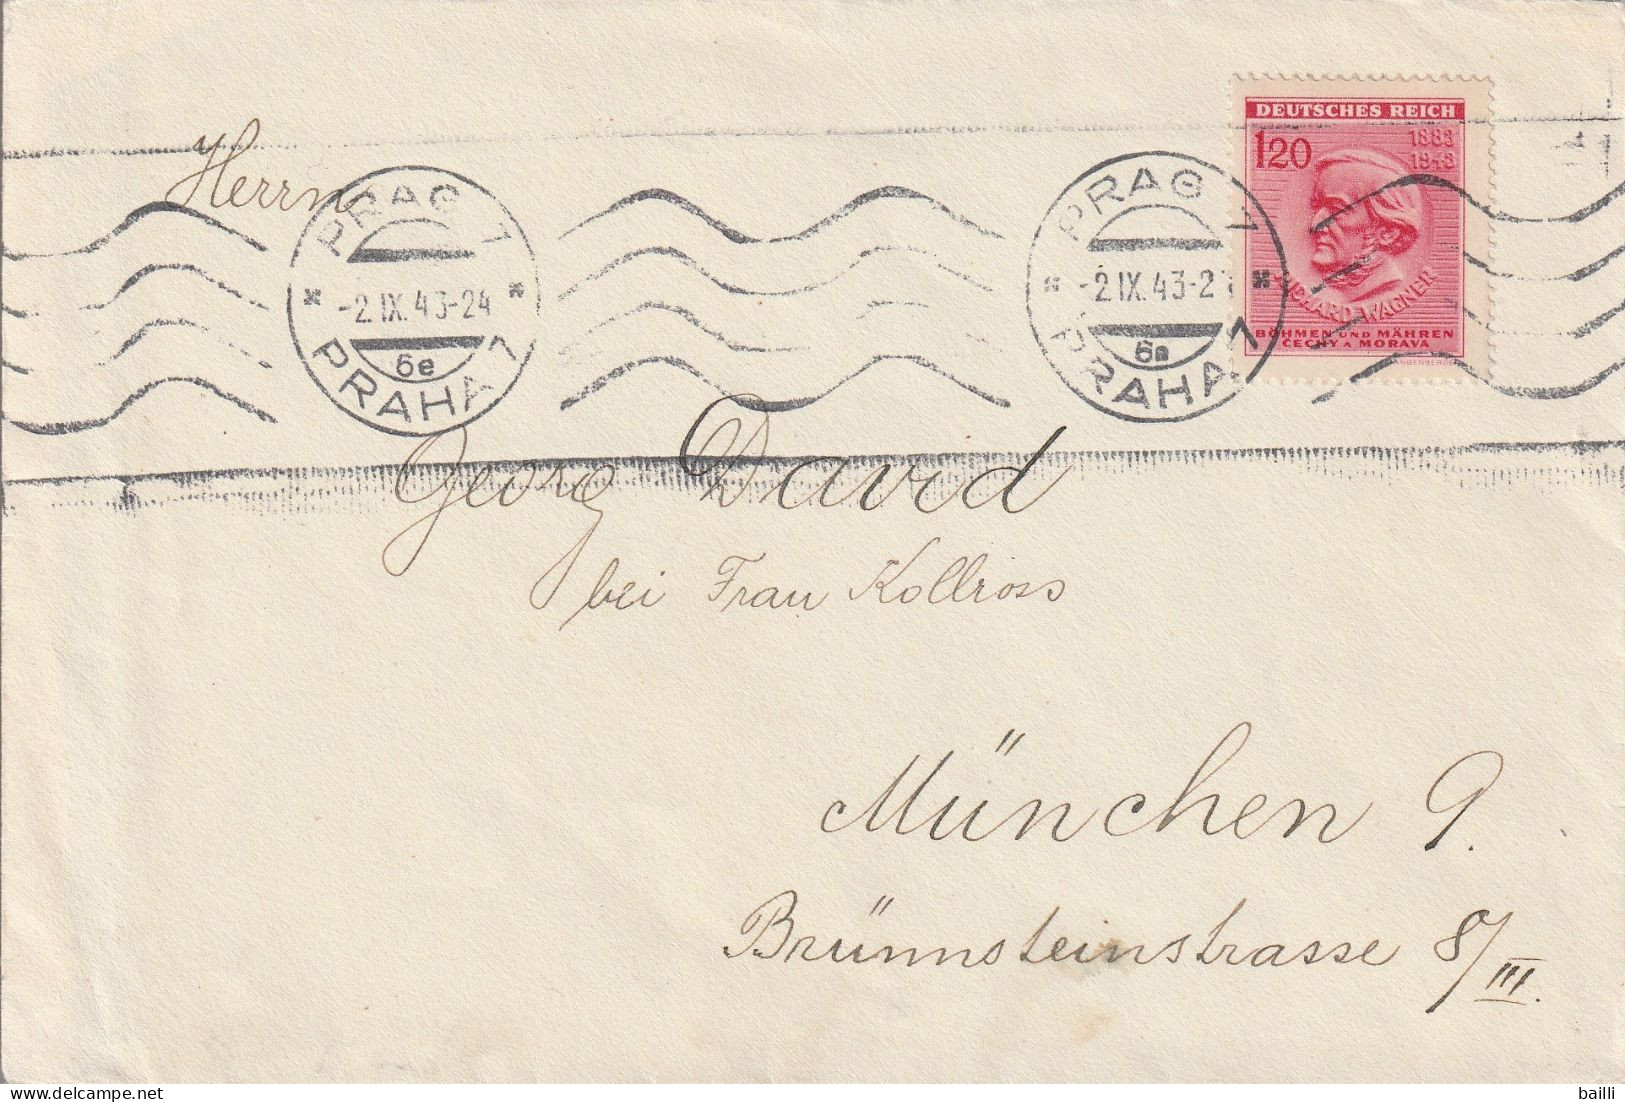 Herrn
Georg David
bei Frau Kollross
München 9.
Brünnsteinstrasse 8/III.
PRAG 7
-2.IX.43-24
6e
PRAHA 7
PRAG 7
-2.IX.43-2
PRAHA 7
DEUTSCHES REICH
1.20
1883
1943
RICHARD WAGNER
BÖHMEN UND MÄHREN
ČECHY A MORAVA
bailli